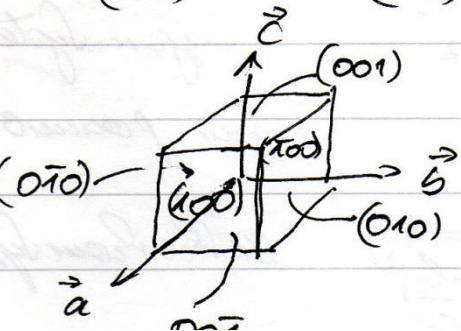 c⃗
(001)
(1̄00)
(01̄0)
(100)
b⃗
(010)
a⃗
001̄